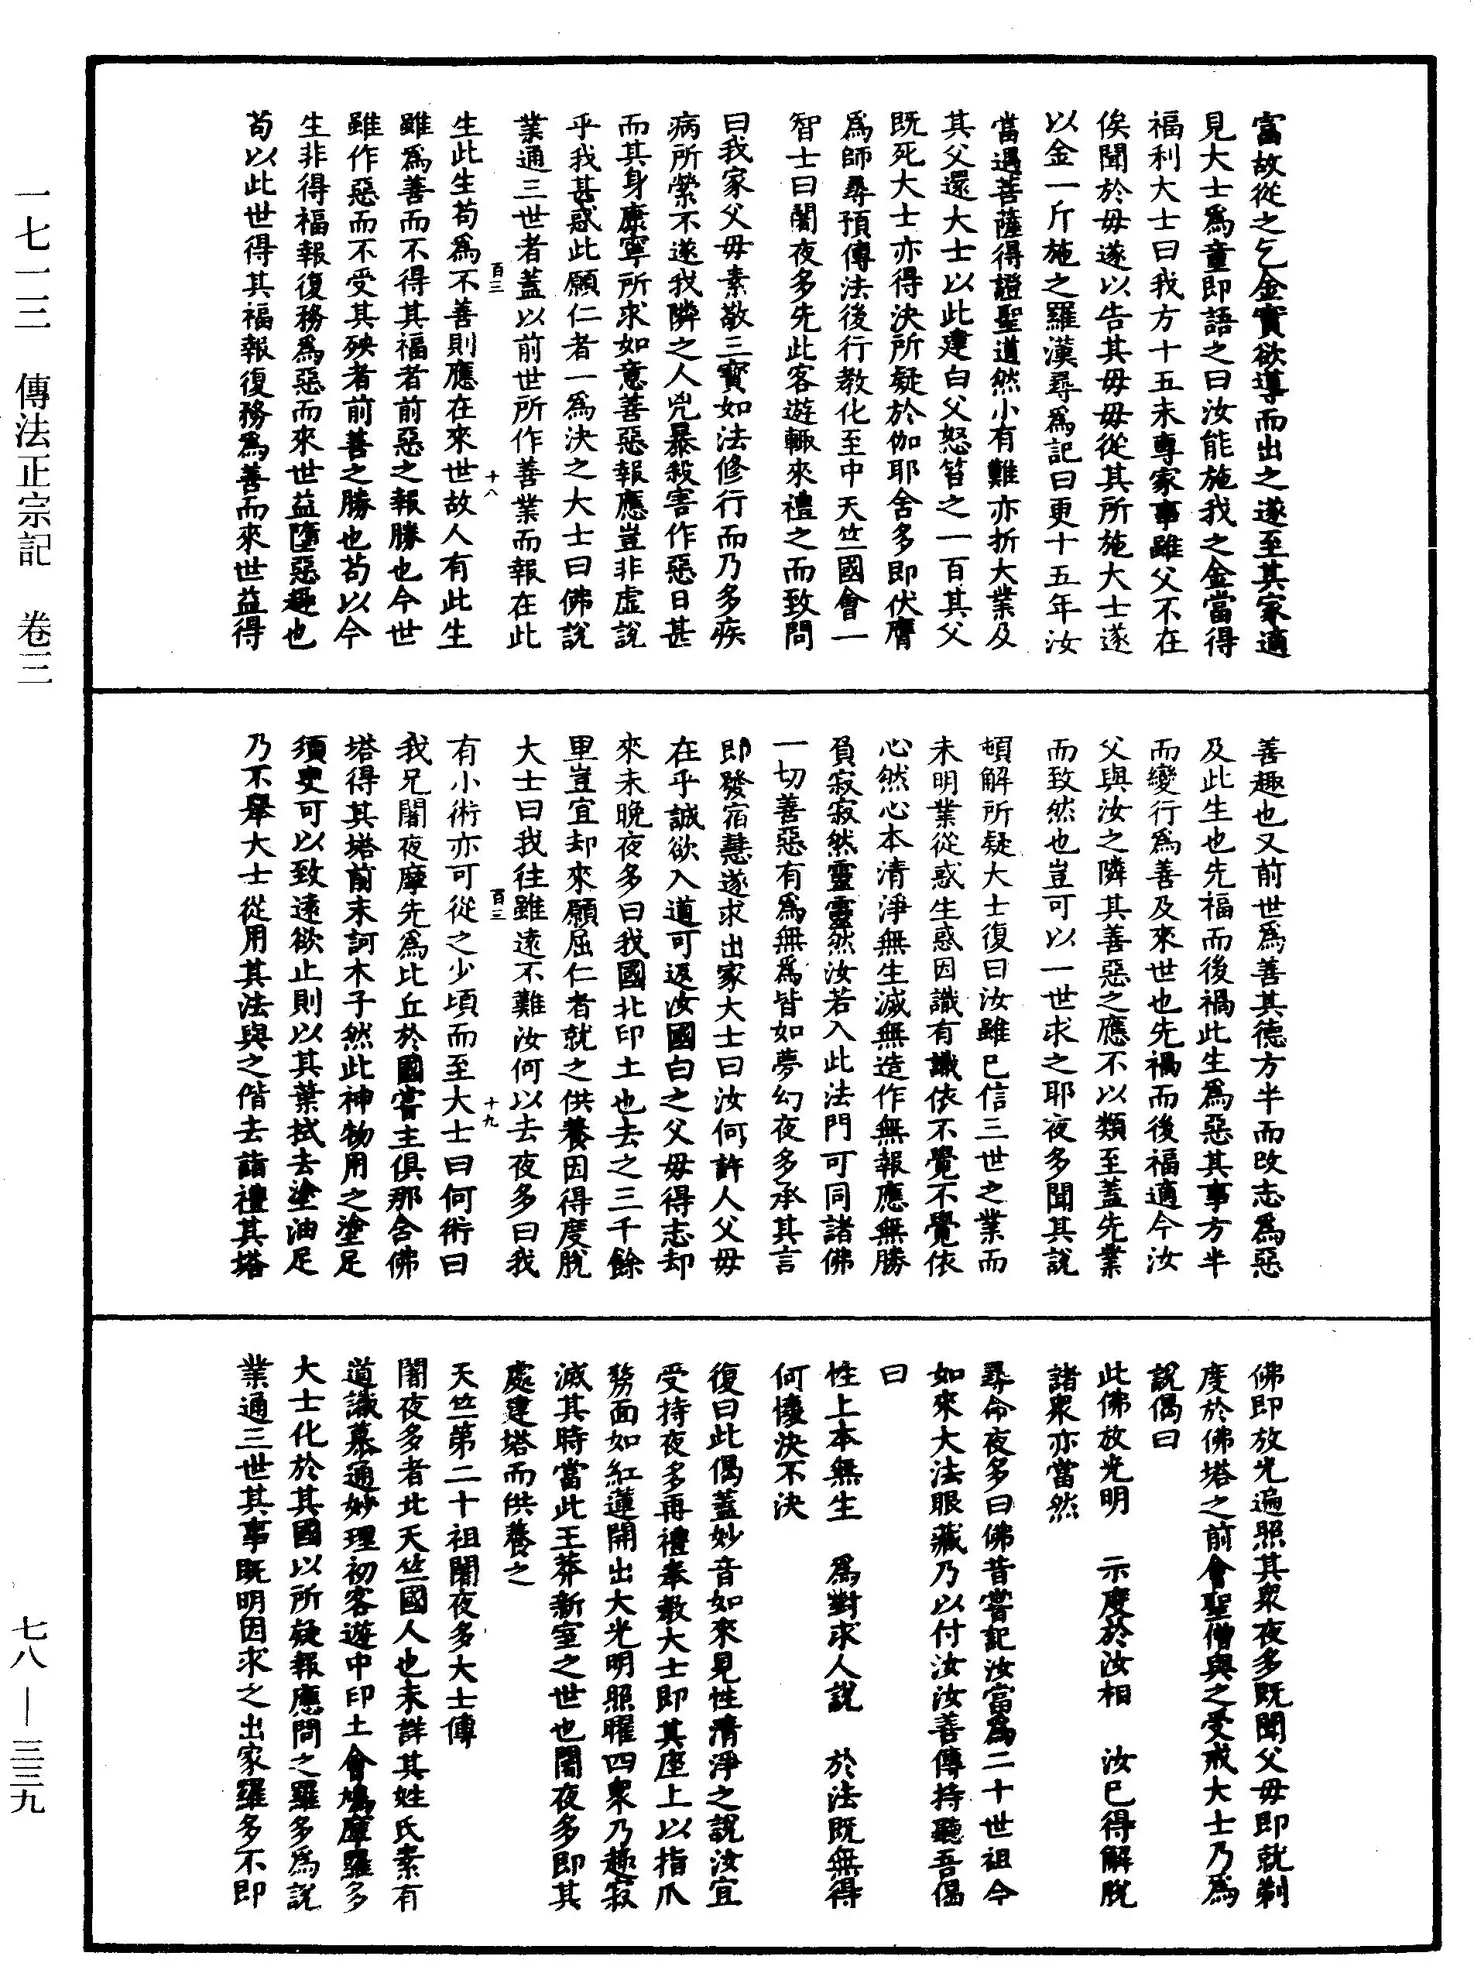 富故從之乞金寶欲導而出之遂至其家適
見大士爲童即語之曰汝能施我之金當得
福利大士曰我方十五未專家事雖父不在
俟聞於毋遂以告其毋毋從其所施大士遂
以金一斤施之羅漢尋爲記曰更十五年汝
當遇菩薩得證聖道然小有難亦折大業及
其父還大士以此建白父怒笞之一百其父
既死大士亦得決所疑於伽耶舍多即伏膺
爲師尋預傳法後行教化至中天竺國會一
智士曰闍夜多先此客遊輙來禮之而致問
曰我家父毋素敬三寳如法修行而乃多疾
病所縈不遂我隣之人兇暴殺害作惡日甚
而其身康寧所求如意善惡報應豈非虛說
乎我甚惑此願仁者一爲決之大士曰佛說
業通三世者蓋以前世所作善業而報在此
百三 十八
生此生苟爲不善則應在來世故人有此生
雖爲善而不得其福者前惡之報勝也今世
雖作惡而不受其殃者前善之勝也苟以今
生非得福報復務爲惡而來世益墮惡趣也
苟以此世得其福報復務爲善而來世益得
善趣也又前世爲善其德方半而改志爲惡
及此生也先福而後禍此生爲惡其事方半
而變行爲善及來世也先禍而後福適今汝
父與汝之隣其善惡之應不以類至蓋先業
而致然也豈可以一世求之耶夜多聞其說
頓解所疑大士復曰汝雖已信三世之業而
未明業從惑生惑因識有識依不覺不覺依
心然心本清淨無生滅無造作無報應無勝
負寂寂然靈靈然汝若入此法門可同諸佛
一切善惡有爲無爲皆如夢幻夜多承其言
即發宿慧遂求出家大士曰汝何許人父毋
在乎誠欲入道可返汝國白之父毋得志却
來未晚夜多曰我國北印土也去之三千餘
里豈宜却來願屈仁者就之供養因得度脫
大士曰我往雖遠不難汝何以去夜多曰我
百三 十九
有小術亦可從之少頃而至大士曰何術曰
我兄闍夜摩先爲比丘於國嘗主俱那含佛
塔得其塔前末訶木子然此神物用之塗足
須臾可以致遠欲止則以其葉拭去塗油足
乃不舉大士從用其法與之偕去詣禮其塔
佛即放光遍照其衆夜多既聞父毋即就剃
度於佛塔之前會聖僧與之受戒大士乃爲
說偈曰
此佛放光明 示度於汝相 汝已得解脫
諸衆亦當然
尋命夜多曰佛昔嘗記汝當爲二十世祖今
如來大法眼藏乃以付汝汝善傳持聽吾偈
曰
性上本無生 爲對求人說 於法既無得
何懷決不決
復曰此偈蓋妙音如來見性清淨之說汝宜
受持夜多再禮奉教大士即其座上以指爪
剺面如紅蓮開出大光明照曜四衆乃趣寂
滅其時當此王莽新室之世也闍夜多即其
處建塔而供養之
天竺第二十祖闍夜多大士傳
闍夜多者北天竺國人也未詳其姓氏素有
道識慕通妙理初客遊中印土會鳩摩羅多
大士化於其國以所疑報應問之羅多爲說
業通三世其事既明因求之出家羅多不即
一七一三 傳法正宗記 卷三
七八—三三九